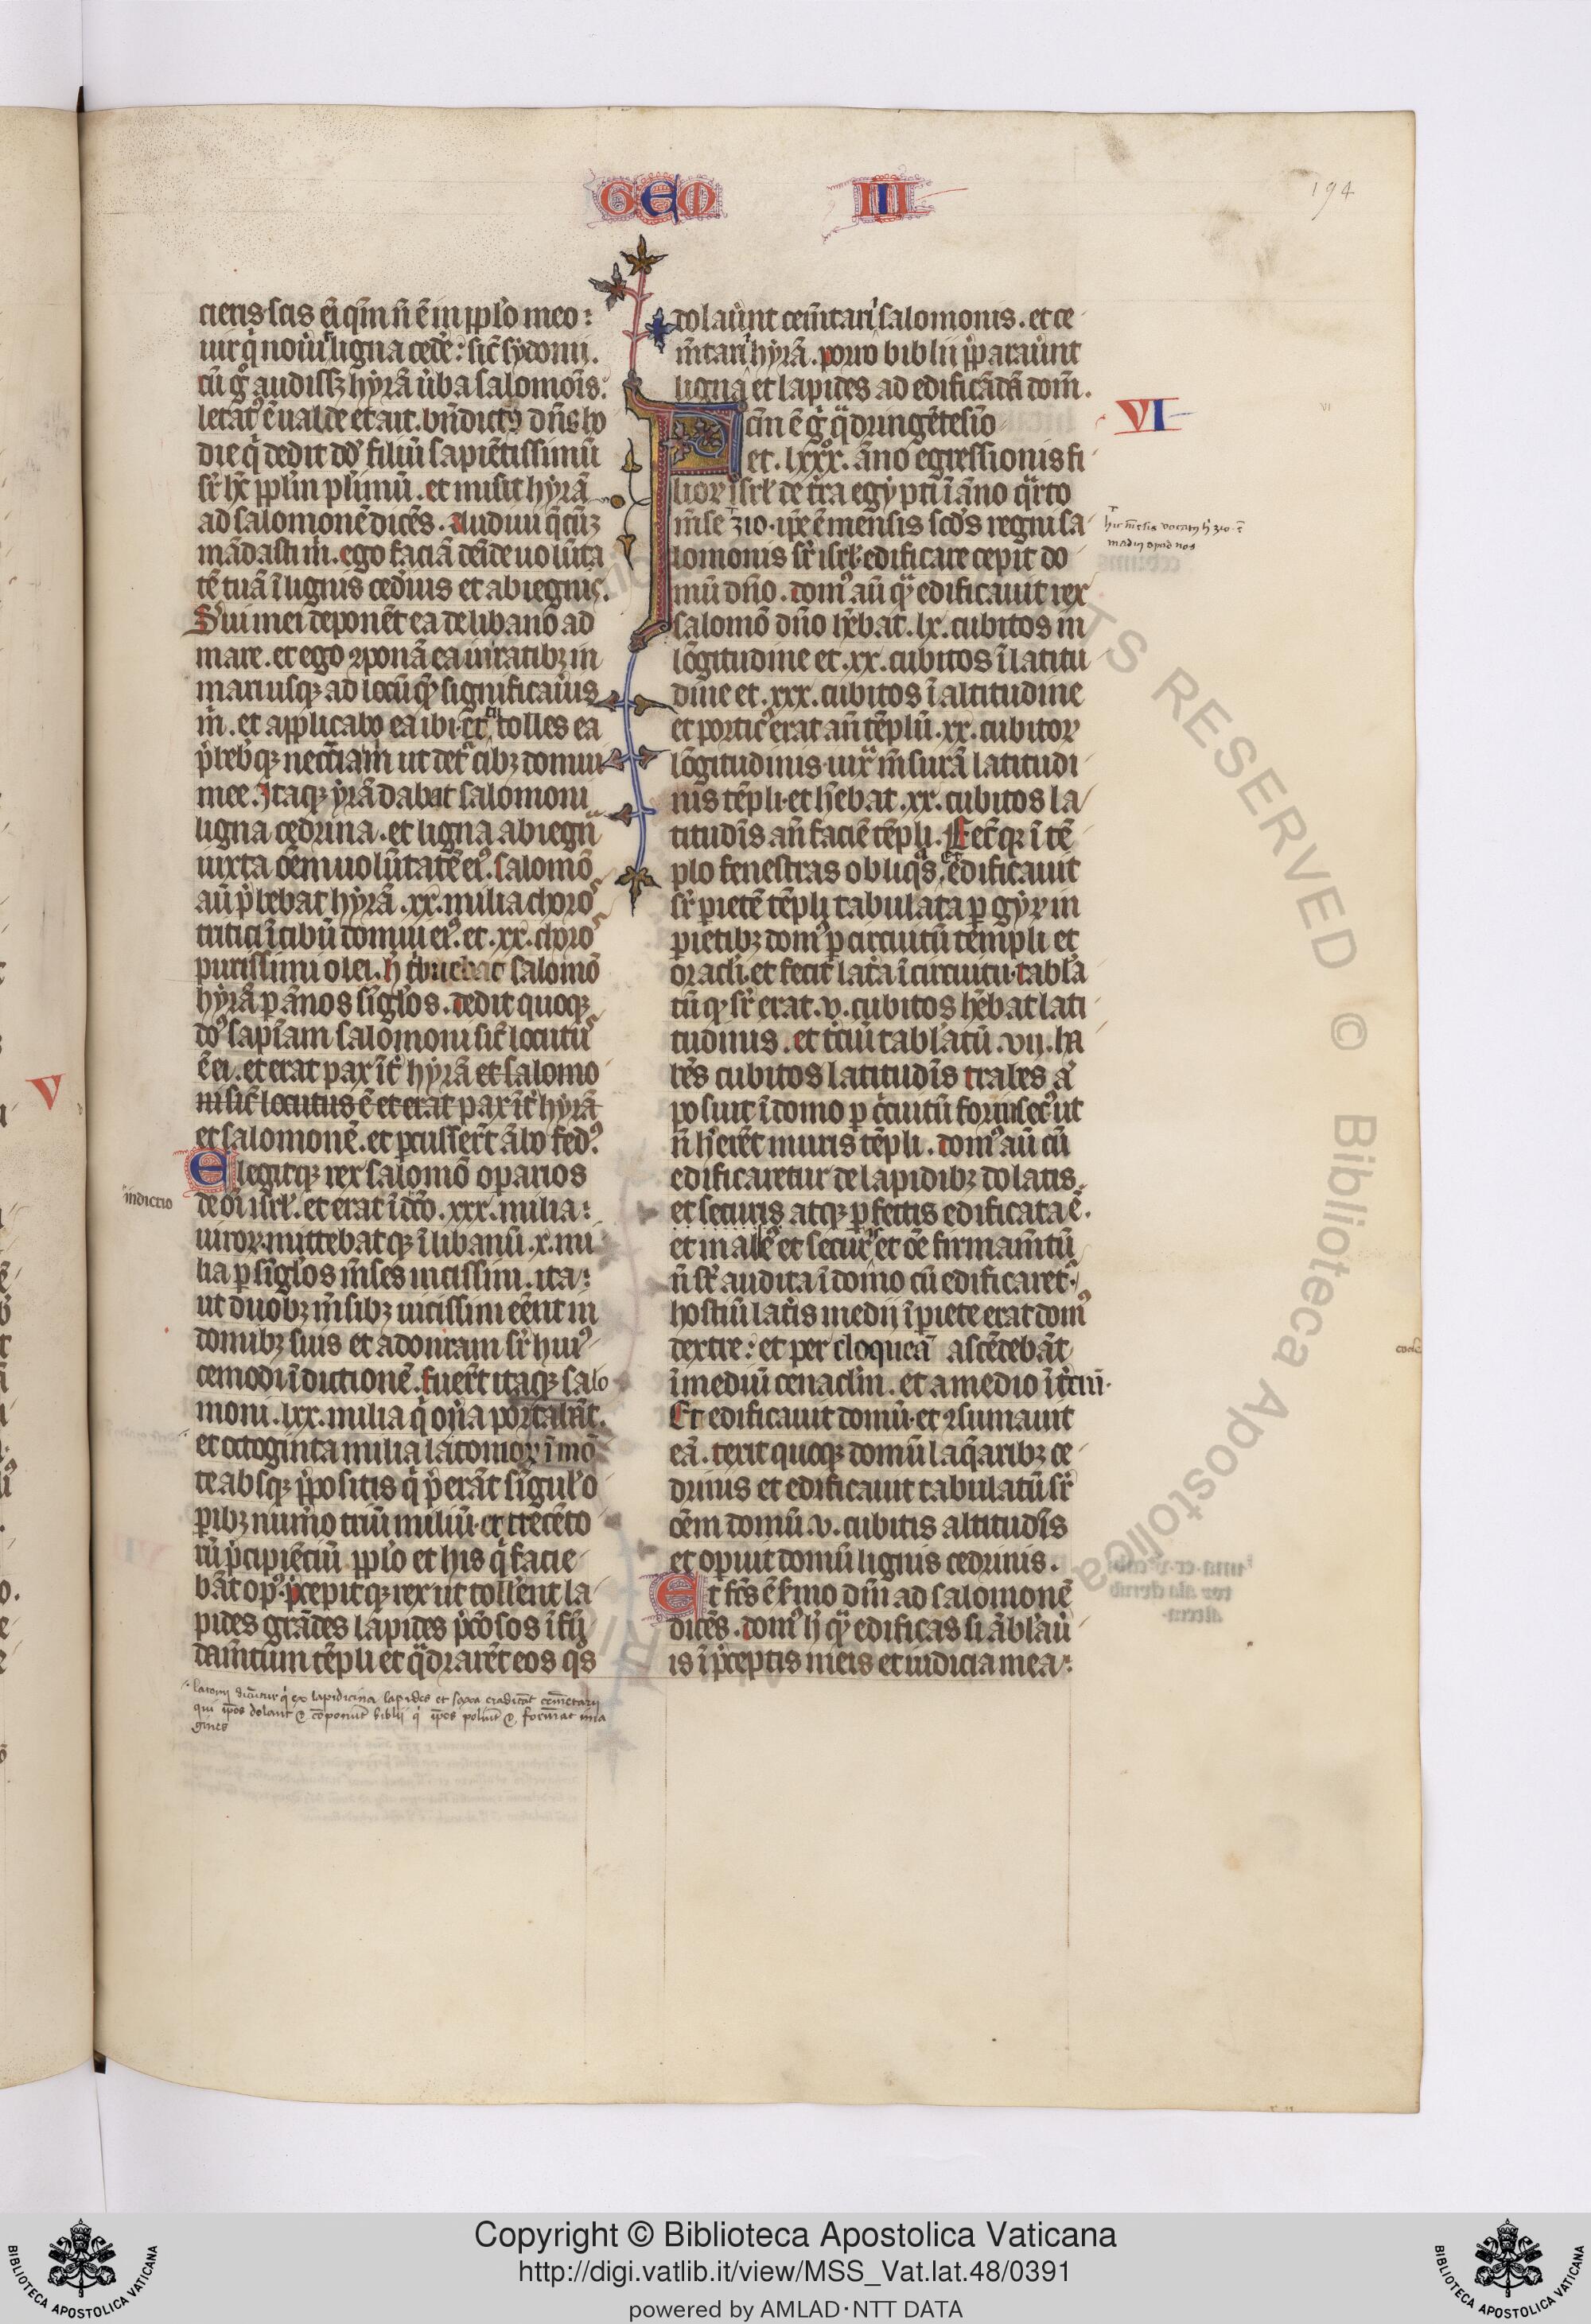 GEM III
194
cieris scis ei̅ qm̅ n̅ e̅ in pplo meo:
uir q̇ nou̾it ligna cede̾: sic̾ sydonii.
cu̅ g̊ audiss; hyra̅ u̾ba salomo̅is:
letat᷒ e̅ ualde et ait. bn̅dict᷒ dn̅s ho
die q̇ dedit dd̾ filiu̅ sapie̅tissimu̅
sr̾ hc̅ pplm̅ plimu̅. et misit hyra̅
ad salomone̅ dice̅s. Audiui q̅cu̅q;
ma̅dasti m̊. ego facia̅ de̅i de uolu̅ta
te̅ tua̅ i̅ lignis ced̾inis et abiegnis.
Sui mei depone̅t ea de libano ad
mare. et ego ꝯpona̅ ea in ratib; in
mari usq; ad locu̅ que̅ significau̾is
m̊. et applicabo ea ibi. et tu tolles ea
p̾bebq; necc̅iam ut det᷒ cib; domui
mee. Itaq; yra̅ dabat salomoni
ligna cedrina. et ligna abiegn̅
iuxta oe̅m uolu̅tate̅ ei᷒. salomo̅
au̅ p̾bebat hyra̅ .xx. milia choro
tritici i̅ cibu̅ domui ei᷒. et .xx. choro
purissimi olei. h̅ t̾buebat salomo̅
hyra̅ ꝑ a̅nos si̅glos. dedit quoq;
do᷒ sapi̅am salomoni sic̾ locutu
e̅ ei. et erat pax i̅t̾ hyra̅ et salomo
ni sic̾ locutus e̅ et erat pax i̅t̾ hyra̅
et salomone̅. et ꝑcusser̅t a̅bo fed᷒
V
Elegitq; rex salomo̅ oꝑarios
indictio
de o̅i isrl̅. et erat i̅dc̅o .xxx. milia:
uiroꝝ. mittebatq; i̅ libanu̅ .x. mi
lia ꝑ si̅glos m̅ses uicissim. ita:
ut duob; m̅sib; uicissim ee̅nt in
domib; suis et adoniram sr̾ hui᷒
cemodi i̅dictione̅. fuer̅t itaq; salo
moni .lxx. milia q̇ on̾a portaba̅t.
et octoginta milia latomoꝝ i̅ mo̅
te absq; p̾positis q̇ p̾era̅t si̅gul o
ꝑib; num̾o triu̅ miliu̅. et trece̅to
ru̅ p̾cipie̅ciu̅ pplo et his q̇ facie
ba̅t op᷒. p̾cepitq; rex ut toll̾ent la
pides gra̅des lapides p̾cosos i̅ fu̅
dam̅tum te̅pli et q̈drare̅t eos q̊s
latomi dicu̅tur q̇ ex lapidicina lapides et saxa eradica̅t cem̅etarii
qui ip̅os dolant ⁊ co̅ponu̅t biblii q̇ ip̅os poliu̅t ⁊ forma̅t ima
gines
dolau̾nt cem̅tarii salomonis. et ce
m̅tarii hyra̅. porro biblii p̾parau̾nt
ligna et lapides ad edifica̅da̅ dom̅.
VI
Fcm̅ e̅ g̊ q̈dringe̅tesi̅o
et. lxxx. a̅no egressionis fi
lioꝝ isrl̅ de t̾ra egypti i̅ a̅no q̈rto
m̅se zio. ip̅e e̅ mensis scd̅s regni sa
hic me̅sis vocatur h̅ zio .i̅.
madius apud nos
lomonis sr̾ isrl̅. edificare cepit do
mu̅ dn̅o. dom᷒ au̅ q̅ edificauit rex
salomo̅ dn̅o h̅ebat .lx. cubitos in
lo̅gitudine et .xx. cubitos i̅ latitu
dine et .xxx. cubitos i̅ altitudine
et portic᷒ erat an̅ te̅plu̅ .xx. cubitoꝝ
lo̅gitudinis. iux̾ m̅sura̅ latitudi
nis te̅pli. et h̅ebat .xx. cubitos la
titudi̅s an̅ facie̅ te̅pli. Fecitq; i̅ te̅
plo fenestras obliq̈s. et edificauit
sr̾ pariete̅ te̅pli tabulata ꝑ gyꝝ in
ꝑietib; dom᷒ ꝑ circuitu̅ templi et
oracli. et fecit lat̾a i̅ circuitu. tabla
tu̅ q̅ sr̾ erat .v. cubitos h̅ebat lati
tudinis. et t̾ciu̅ tablatu̅ .vii. ha
be̅s cubitos latitudi̅s trabes a̅t
posuit i̅ domo ꝑ c̾cuitu̅ forinsec᷒ ut
n̅ h̾ere̅t muris te̅pli. dom᷒ au̅ cu̅
edificaretur de lapidib; dolatis
et securis atq; ꝑfectis edificata e̅.
et malle᷒ et secur̾ et oe̅ firmam̅tu̅
n̅ st̅ audita i̅ domo cu̅ edificaret᷒
hostiu̅ lat̾is medii i̅ ꝑiete erat dom᷒
dextre: et per cloquea̅ asce̅deba̅t
i̅ mediu̅ cenaclm̅. et a medio i̅ t̾ciu̅.
Et edificauit domu̅. et ꝯsumauit
ea̅. texit quoq; domu̅ laq̈arib; ce
drinis et edificauit tabulatu̅ sr̾
oe̅m domu̅ .v. cubitis altitudi̅s
et opuit domu̅ lignis cedrinis.
Et fc̅s e̅ s̾mo dn̅i ad salomone̅
dice̅s. dom᷒ h̅ q̅ edificas si a̅blau̾
is i̅ p̾ceptis meis et iudicia mea:
RESERVED © Biblioteca Apostolica
Copyright © Biblioteca Apostolica Vaticana
http://digi.vatlib.it/view/MSS_Vat.lat.48/0391
powered by AMLAD·NTT DATA
BIBLIOTECA APOSTOLICA VATICANA
BIBLIOTECA APOSTOLICA VATICANA